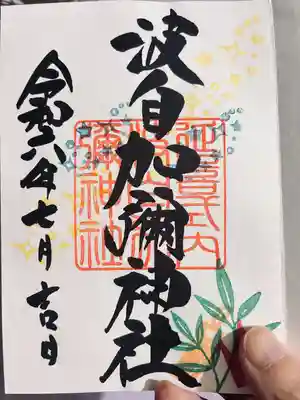 波自加彌神社
延喜式内
彌神社
令和六年七月吉日